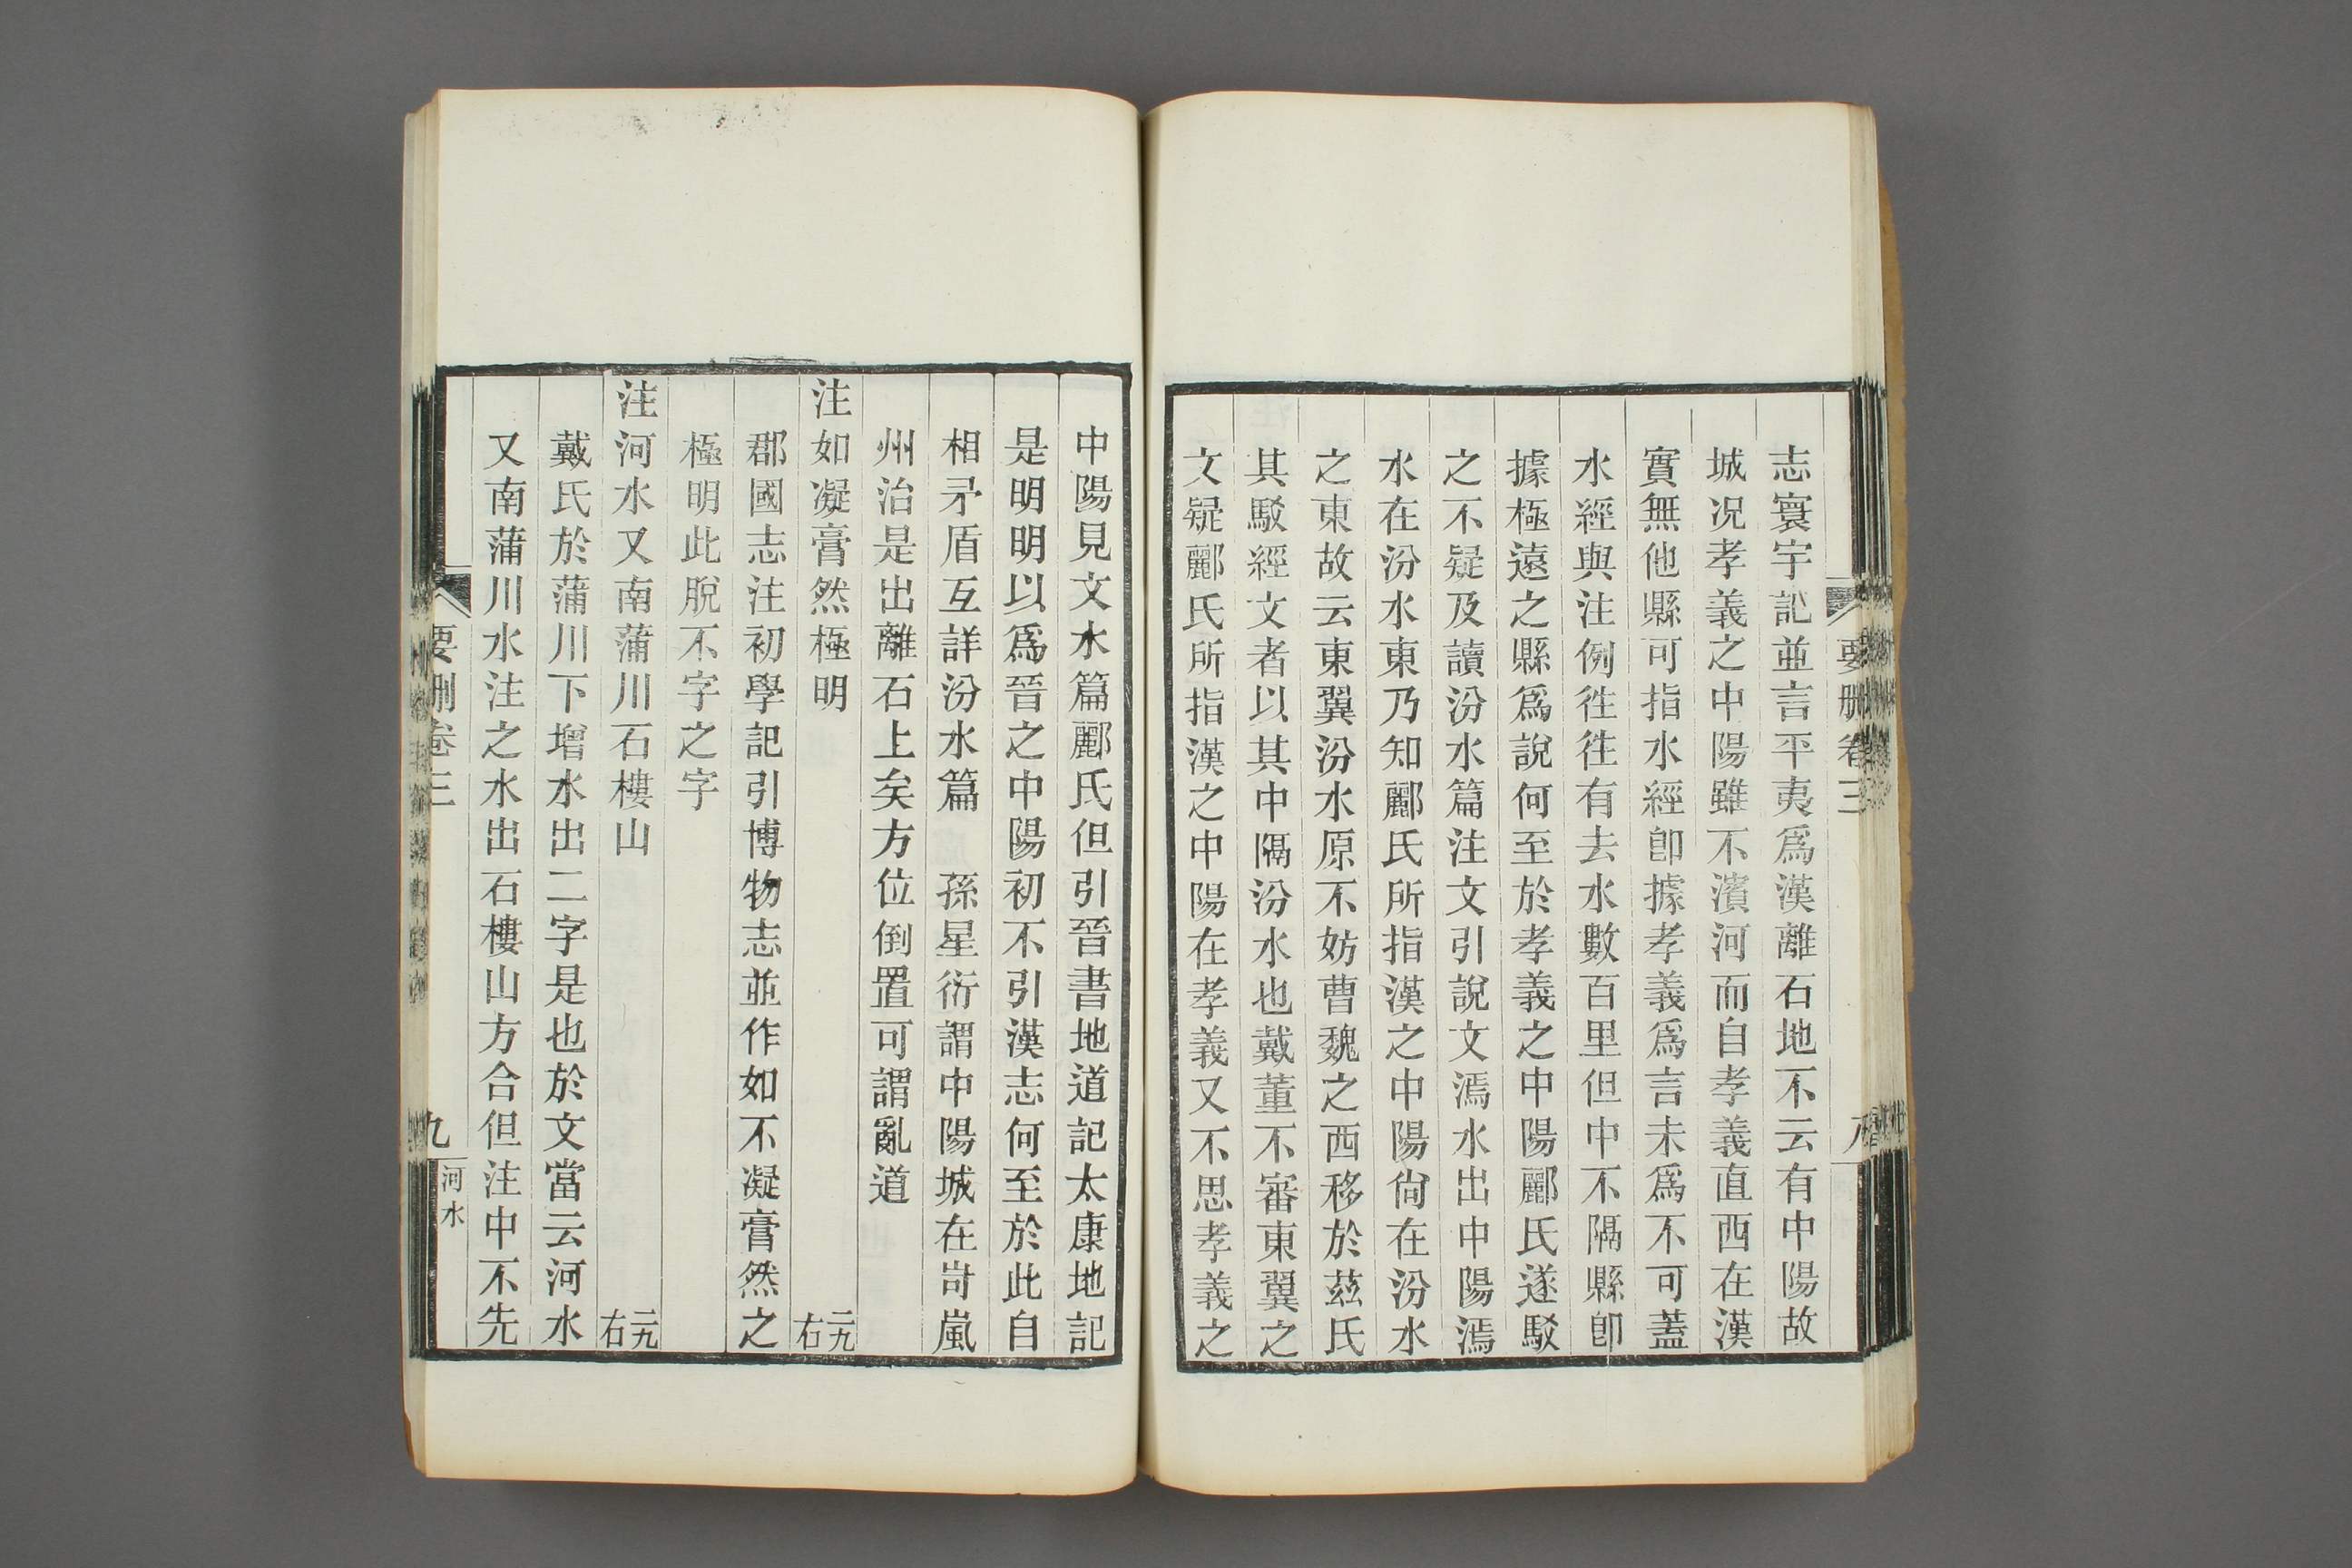 要刪卷三
八
志寰宇記並言平夷爲漢離石地不云有中陽故
城况孝義之中陽雖不濱河而自孝義直西在漢
實無他縣可指水經卽據孝義爲言未爲不可蓋
水經與注例徃徃有去水數百里但中不隔縣卽
據極遠之縣爲說何至於孝義之中陽酈氏遂駁
之不疑及讀汾水篇注文引說文潹水出中陽潹
水在汾水東乃知酈氏所指漢之中陽尙在汾水
之東故云東翼汾水原不妨曹魏之西移於茲氏
其駁經文者以其中隔汾水也戴董不審東翼之
文疑酈氏所指漢之中陽在孝義又不思孝義之
中陽見文水篇酈氏但引晉書地道記太康地記
是明明以爲晉之中陽初不引漢志何至於此自
相矛盾互詳汾水篇 孫星衍謂中陽城在岢嵐
州治是出離石上矣方位倒置可謂亂道
注如凝膏然極明 二九右
郡國志注初學記引博物志並作如不凝膏然之
極明此脫不字之字
注河水又南蒲川石樓山 二九右
戴氏於蒲川下增水出二字是也於文當云河水
又南蒲川水注之水出石樓山方合但注中不先
要刪卷三
九
河水